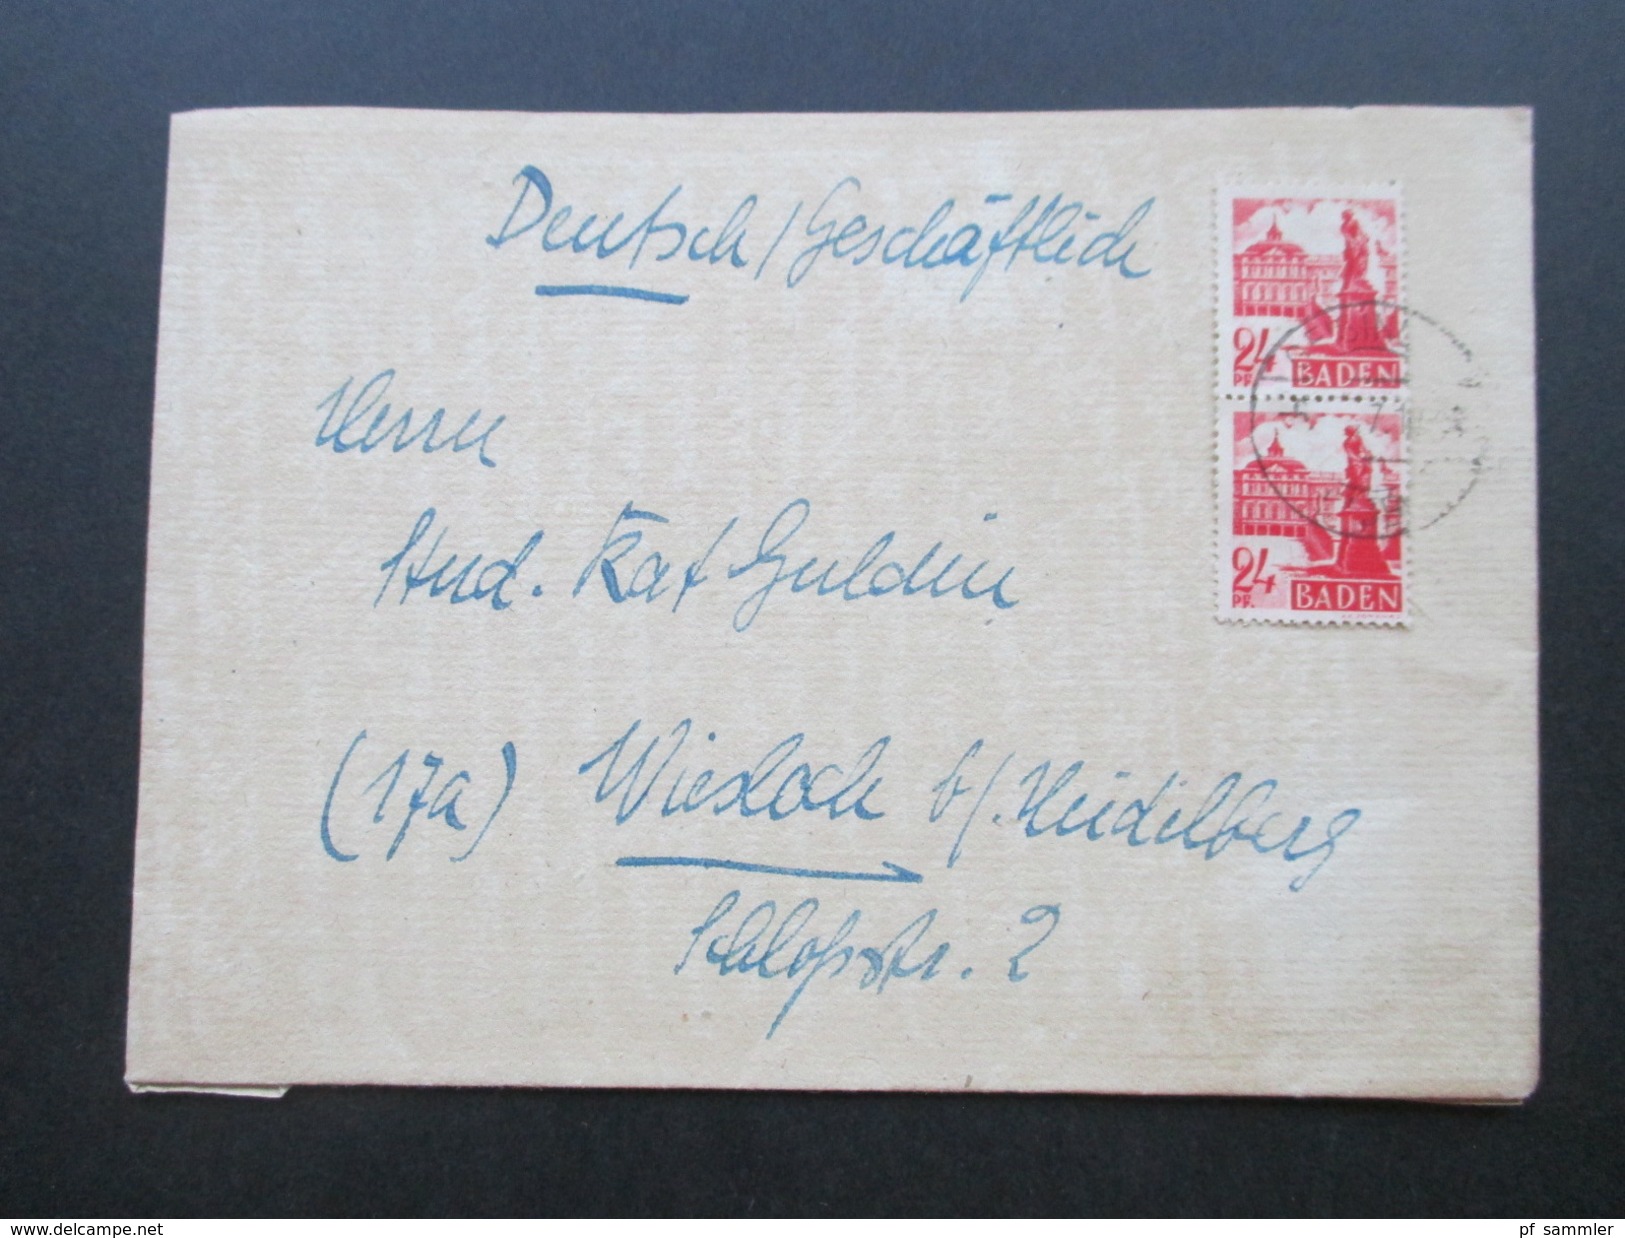 Deutsch / Geschäftlich
Herrn
Stud. Rat Guldin
(17a) Wiesloch b/. Heidelberg
Schloßstr. 2
24
PF.
BADEN
24
PF.
BADEN
www.delcampe.net
pf_sammler